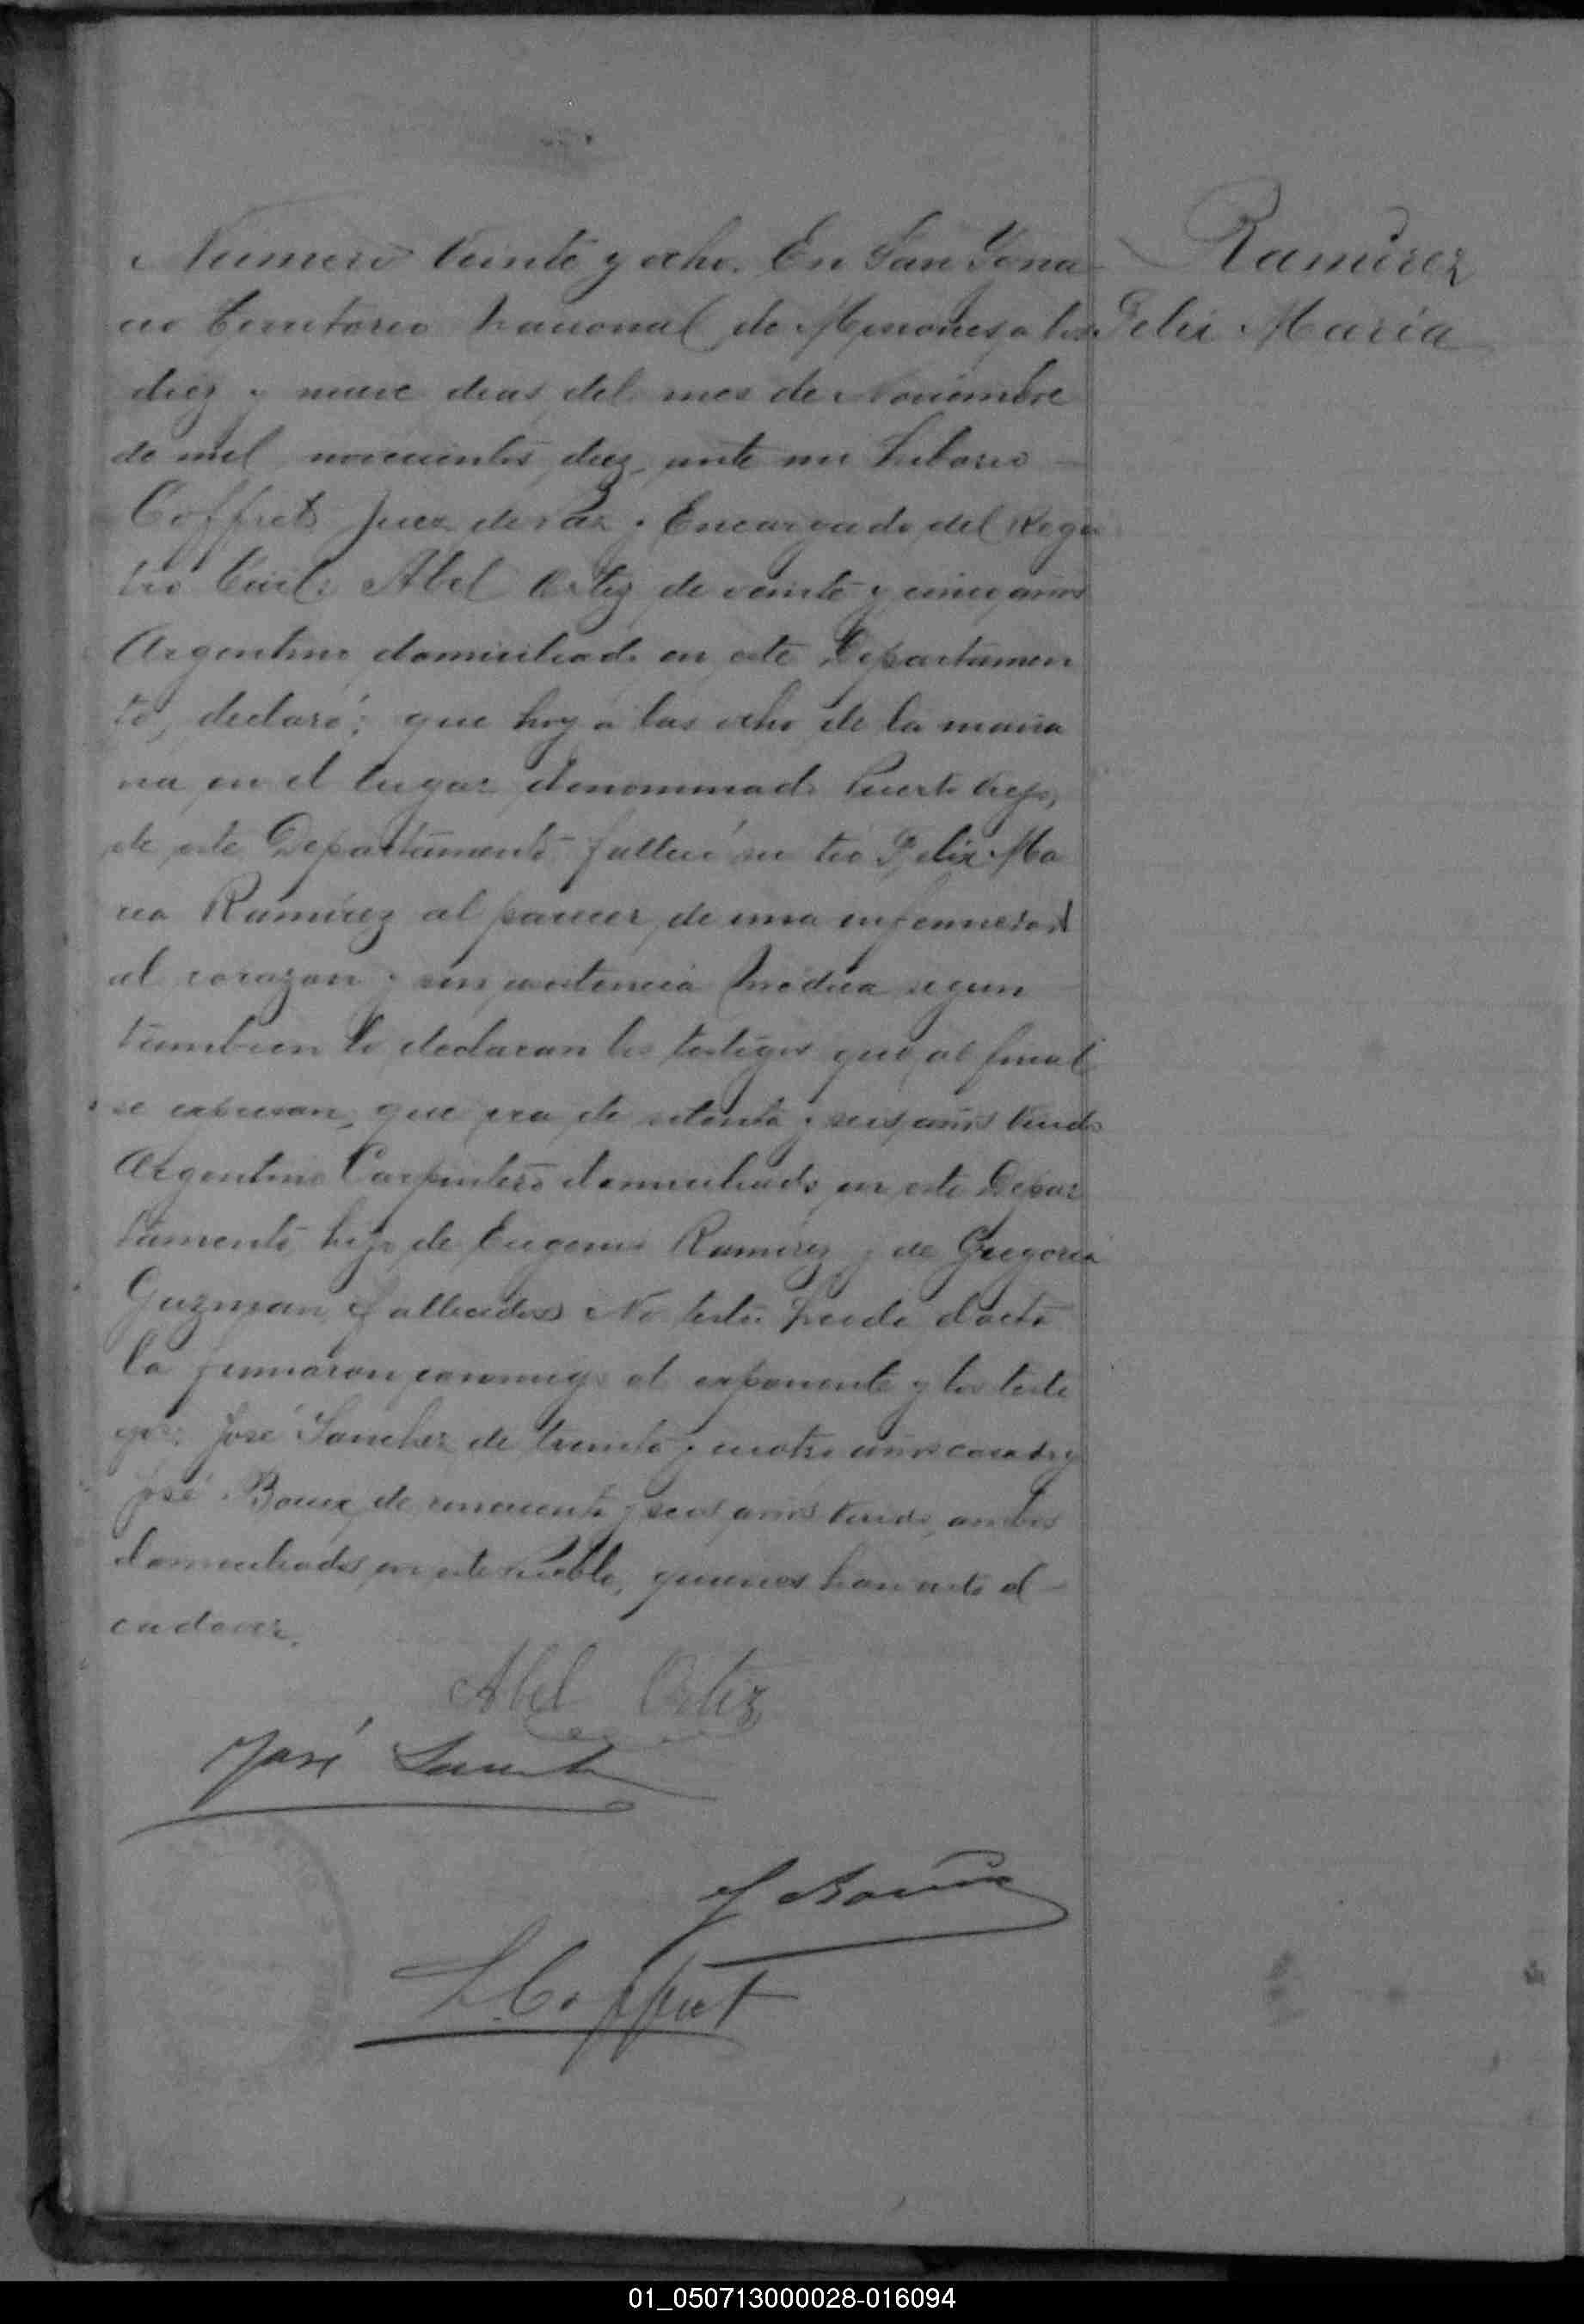 Numero Veinte y ocho. En San Ygna
cio Territorio Nacional de Misiones, a los
diez y nueve dias del mes de Noviembre
de mil novecientos diez, ante mi Hilario
Coffret Juez de Paz y Encargado del Regis
tro Civil: Abel Ortiz de veinte y cinco años
Argentino domiciliado en este Departamen
to, declaró; que hoy a las ocho de la maña
na en el lugar denominado Puerto Viejo,
de este Departamento falleció su tio Felix Ma
ria Ramirez al parecer de una enfermedad
al corazon y sin asistencia medica segun
tambien lo declaran los testigos que al final
se expresan, que era de setenta y seis años viudo
Argentino Carpintero domiciliado en este Depar
tamento hijo de Eugenio Ramirez y de Gregoria
Guzman, fallecidos No testó Leida el acta
la firmaron conmigo el exponente y los testi
gos: José Sanchez de treinta y cuatro años casado y
José Bouix de cincuenta y seis años viudo, ambos
domiciliados en este Pueblo, quienes han visto el
cadaver.
Ramirez
Felix Maria
Abel Ortiz
José Sanch
J Bouix
H. Coffret
01_050713000028-016094